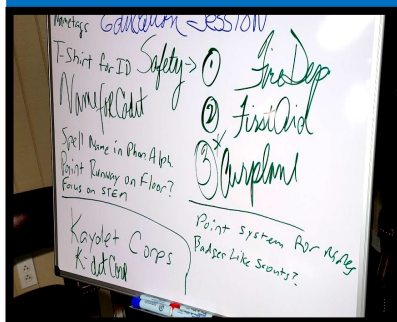 Nametags Education Session
T-Shirt for ID
Safety → ① Fire Dep
Name for Cadet
② First Aid
Spell Name in Phon Alph
③ Airplane
Point Runway on Floor?
Focus on STEM
Kaydet Corps
K-det Corp
Point System for
Badges Like Scouts?